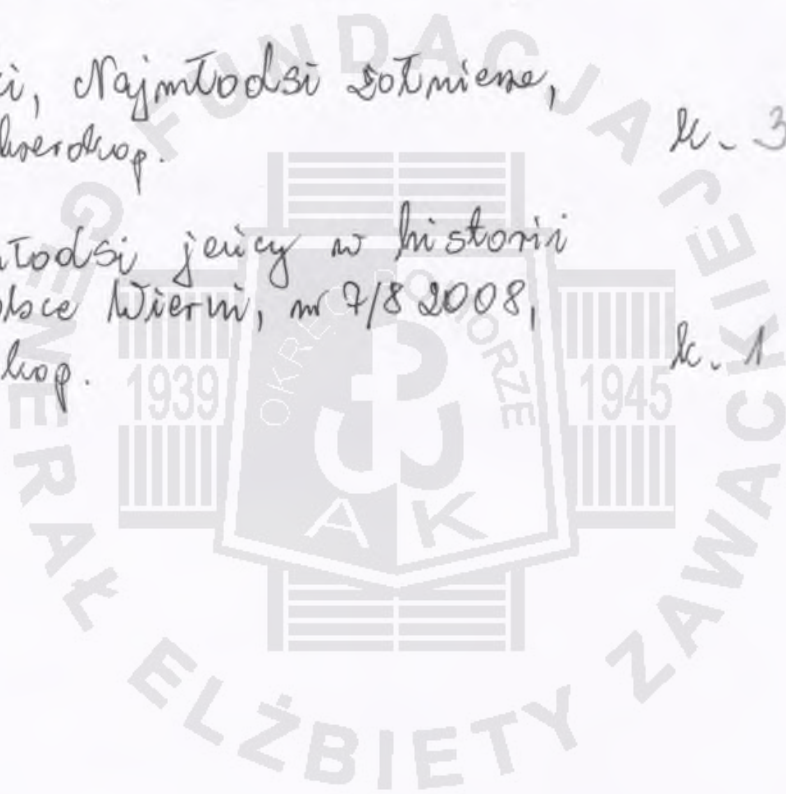 ci, Najmłodsi żołnierze,
kserokop.
k. 3
młodsi jeńcy w historii
Polsce Wierni, nr 7/8 2008,
kop.
k. 1
FUNDACJA GENERAŁ ELŻBIETY ZAWACKIEJ
OKRĘG POMORZE
1939
1945
AK